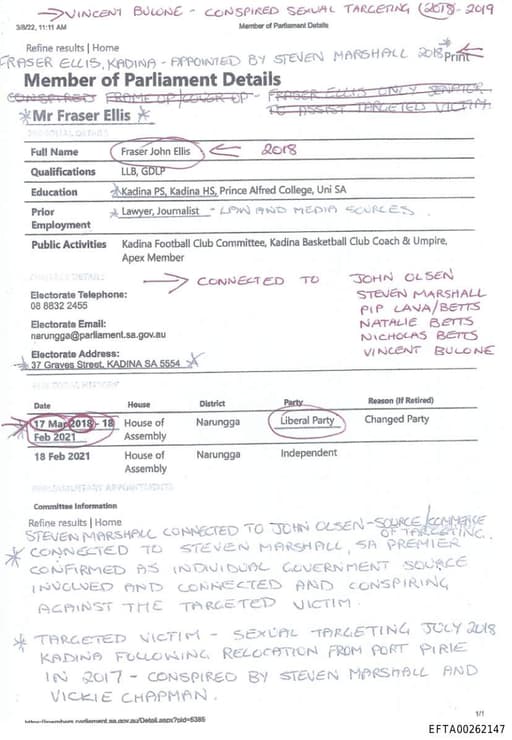 → VINCENT BULONE - CONSPIRED SEXUAL TARGETING (2018-2019
3/8/22, 11:11 AM Member of Parliament Details
Refine results | Home
FRASER ELLIS, KADINA - APPOINTED BY STEVEN MARSHALL 2018 Print
Member of Parliament Details
CONSPIRED FRAME UP/COVER UP - FRASER ELLIS ONLY SENATOR
TO ASSIST TARGETED VICTIM.
* Mr Fraser Ellis *
PERSONAL DETAILS
Full Name Fraser John Ellis ← 2018
Qualifications LLB, GDLP
Education * Kadina PS, Kadina HS, Prince Alfred College, Uni SA
Prior Employment * Lawyer, Journalist - LAW AND MEDIA SOURCES.
Public Activities Kadina Football Club Committee, Kadina Basketball Club Coach & Umpire,
Apex Member
CONTACT DETAILS
→ CONNECTED TO JOHN OLSEN
STEVEN MARSHALL
PIP LAVA/BETTS
NATALIE BETTS
NICHOLAS BETTS
VINCENT BULONE
Electorate Telephone:
08 8832 2455
Electorate Email:
narungga@parliament.sa.gov.au
Electorate Address:
* 37 Graves Street, KADINA SA 5554 *
Date House District Party Reason (If Retired)
* 17 Mar 2018 - 18 Feb 2021 House of Assembly Narungga Liberal Party Changed Party
18 Feb 2021 House of Assembly Narungga Independent
PARLIAMENTARY APPOINTMENTS
Committee Information
Refine results | Home
STEVEN MARSHALL CONNECTED TO JOHN OLSEN - SOURCE/COMMERCE
OF TARGETING.
* CONNECTED TO STEVEN MARSHALL, SA PREMIER
CONFIRMED AS INDIVIDUAL GOVERNMENT SOURCE
INVOLVED AND CONNECTED AND CONSPIRING
AGAINST THE TARGETED VICTIM.
* TARGETED VICTIM - SEXUAL TARGETING JULY 2018
KADINA FOLLOWING RELOCATION FROM PORT PIRIE
IN 2017 - CONSPIRED BY STEVEN MARSHALL AND
VICKIE CHAPMAN.
1/1
EFTA00262147